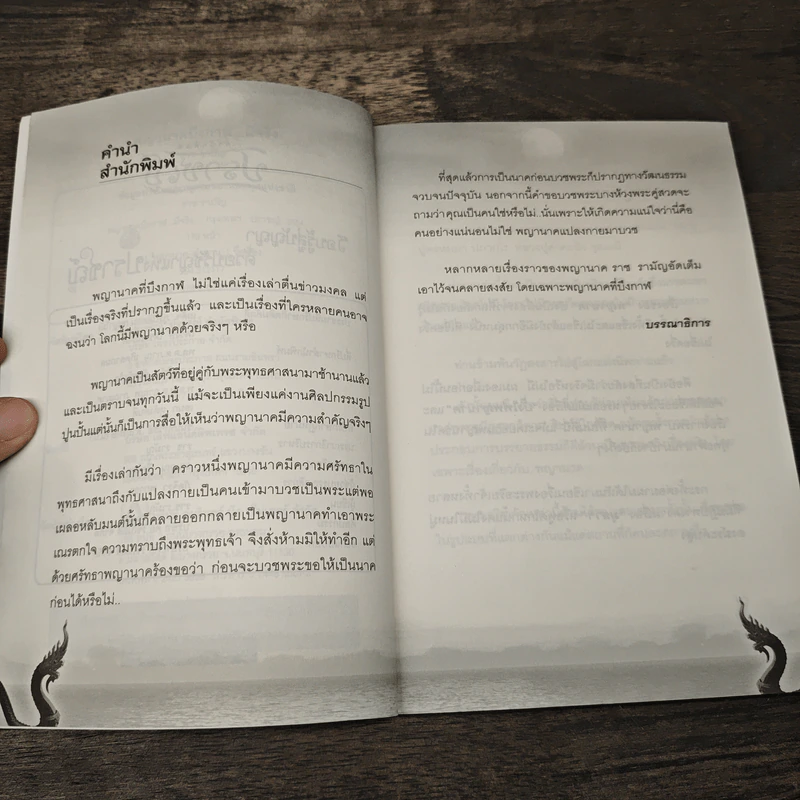 คำนำ
สำนักพิมพ์
พญานาคที่บึงกาฬ ไม่ใช่แค่เรื่องเล่าตื่นข่าวมงคล แต่
เป็นเรื่องจริงที่ปรากฏขึ้นแล้ว และเป็นเรื่องที่ใครหลายคนอาจ
ฉงนว่า โลกนี้มีพญานาคด้วยจริงๆ หรือ
พญานาคเป็นสัตว์ที่อยู่คู่กับพระพุทธศาสนามาช้านานแล้ว
และเป็นตราบจนทุกวันนี้ แม้จะเป็นเพียงแค่งานศิลปกรรมรูป
ปูนปั้นแต่นั้นก็เป็นการสื่อให้เห็นว่าพญานาคมีความสำคัญจริงๆ
มีเรื่องเล่ากันว่า คราวหนึ่งพญานาคมีความศรัทธาใน
พุทธศาสนาถึงกับแปลงกายเป็นคนเข้ามาบวชเป็นพระแต่พอ
เผลอหลับมนต์นั้นก็คลายออกกลายเป็นพญานาคทำเอาพระ
เณรตกใจ ความทราบถึงพระพุทธเจ้า จึงสั่งห้ามมิให้ทำอีก แต่
ด้วยศรัทธาพญานาคร้องขอว่า ก่อนจะบวชพระขอให้เป็นนาค
ก่อนได้หรือไม่..
ที่สุดแล้วการเป็นนาคก่อนบวชพระก็ปรากฏทางวัฒนธรรม
จวบจนปัจจุบัน นอกจากนี้คำขอบวชพระบางห้วงพระคู่สวดจะ
ถามว่าคุณเป็นคนใช่หรือไม่..นั่นเพราะให้เกิดความแน่ใจว่านี่คือ
คนอย่างแน่นอนไม่ใช่ พญานาคแปลงกายมาบวช
หลากหลายเรื่องราวของพญานาค ราช รามัญอัดเต็ม
เอาไว้จนคลายสงสัย โดยเฉพาะพญานาคที่บึงกาฬ
บรรณาธิการ